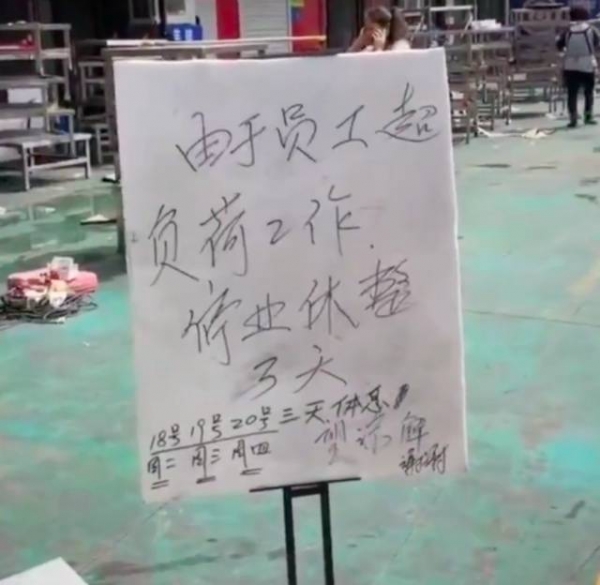 由于员工超
负荷工作.
停业休整
3天
18号 19号 20号 三天休息
周二 周三 周四
望谅解
谢谢